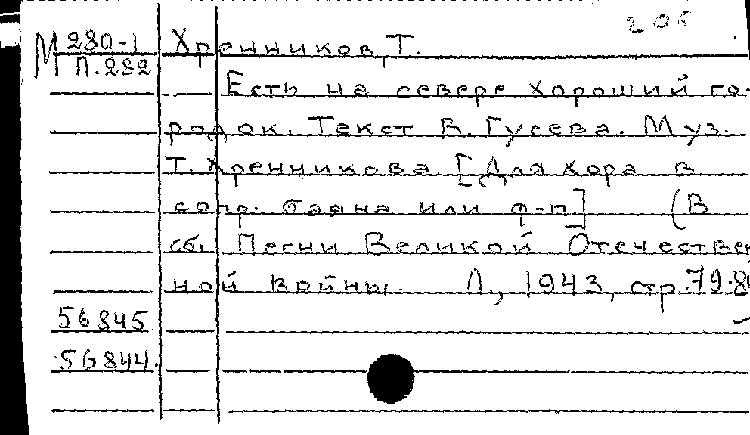 206
М 280-1 Хренников, Т.
П.282
Есть на севере хороший го-
родок. Текст В. Гусева. Муз.
Т. Хренникова [Для хора в
сопр. баяна или ф-п] (В
сб. Песни Великой Отечествен
ной войны. Л., 1943, стр. 79-80
56845
56844.